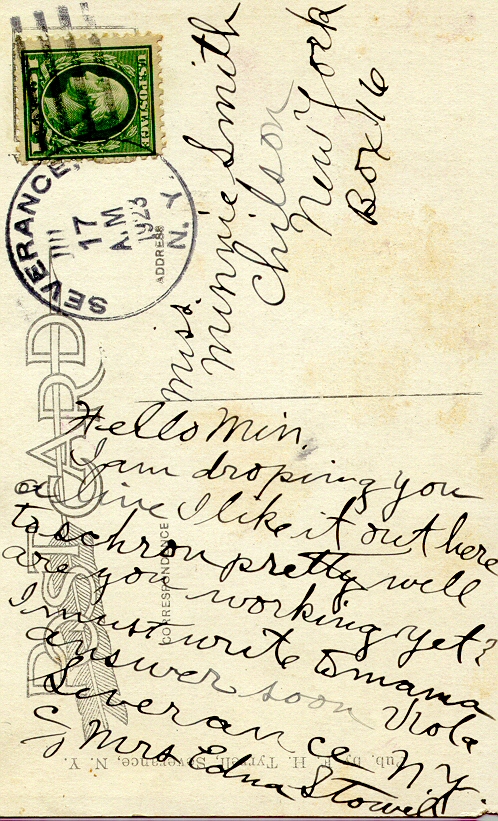 U.S. POSTAGE
SEVERANCE, N.Y.
17
A.M
1923
POST CARD
ADDRESS
CORRESPONDENCE
Miss.
Minnie Smith
Chilson
New York
Box 16
Hello Min.
I am droping you
a line I like it out here
to schron pretty well
are you working yet?
I must write to mama
answer soon Viola
Severance N.Y.
c/o Mrs Edna Stowell
Pub. by F. H. Tyrrell, Severance, N. Y.